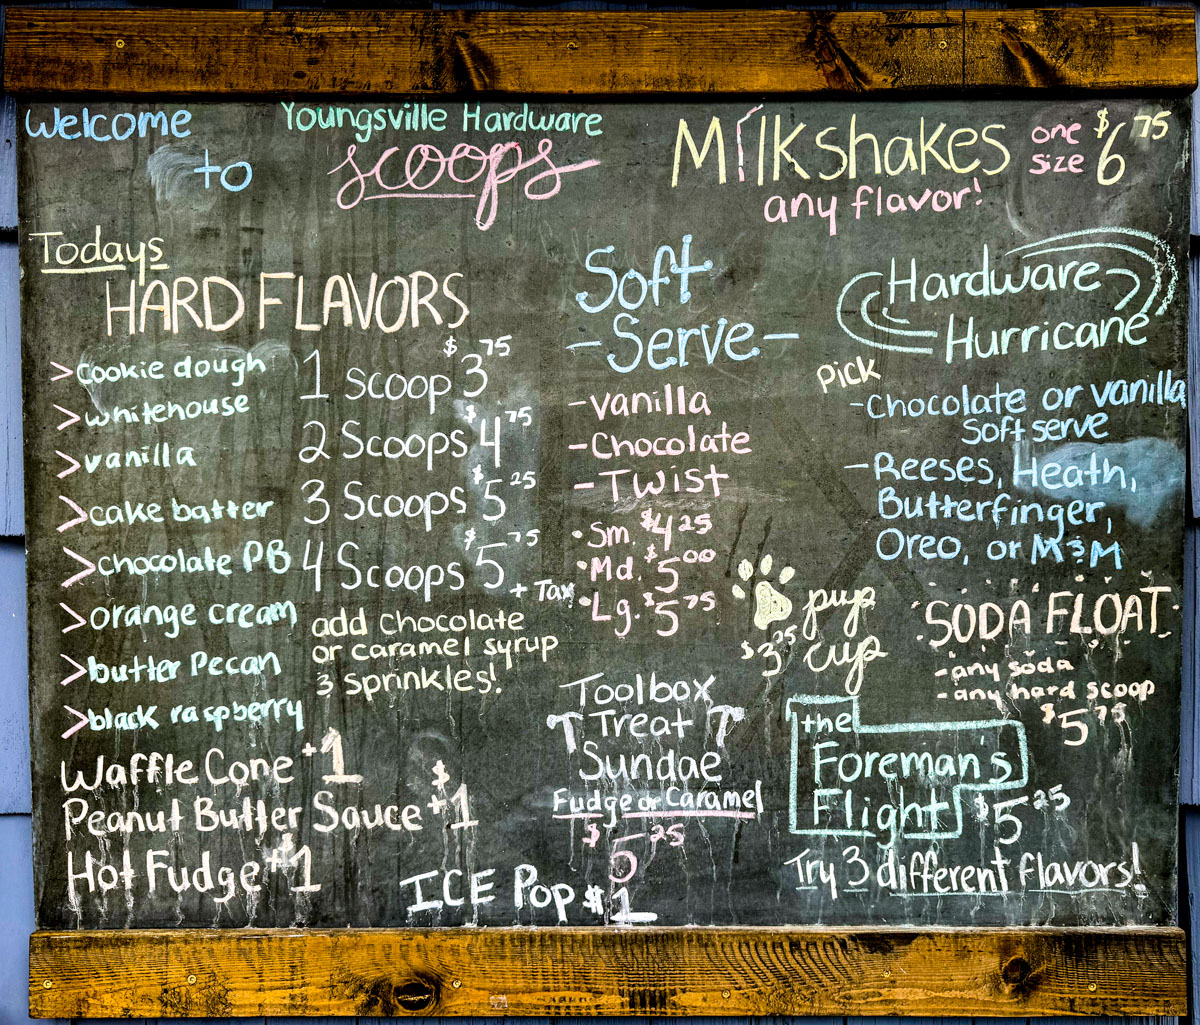 Welcome
to
Youngsville Hardware
scoops
Milkshakes one size $6 75
any flavor!
Todays
HARD FLAVORS
> cookie dough
> whitehouse
> vanilla
> cake batter
> chocolate PB
> orange cream
> butter Pecan
> black raspberry
1 scoop $3 75
2 Scoops $4 75
3 Scoops $5 25
4 Scoops $5 75
+ Tax
add Chocolate
or caramel syrup
& sprinkles!
Waffle Cone +1
Peanut Butter Sauce +$1
Hot Fudge +$1
ICE POP $1
Soft
-Serve-
-vanilla
-Chocolate
-Twist
•Sm. $4 25
•Md. $5 00
•Lg. $5 75
pup
cup
$3 25
Toolbox
Treat
Sundae
Fudge or Caramel
$5 25
Hardware
Hurricane
Pick
-Chocolate or vanilla
Soft serve
-Reeses, Heath,
Butterfinger,
Oreo, or M&M
SODA FLOAT
-any soda
-any hard scoop
$5 75
the
Foreman's
Flight $5 25
Try 3 different flavors!